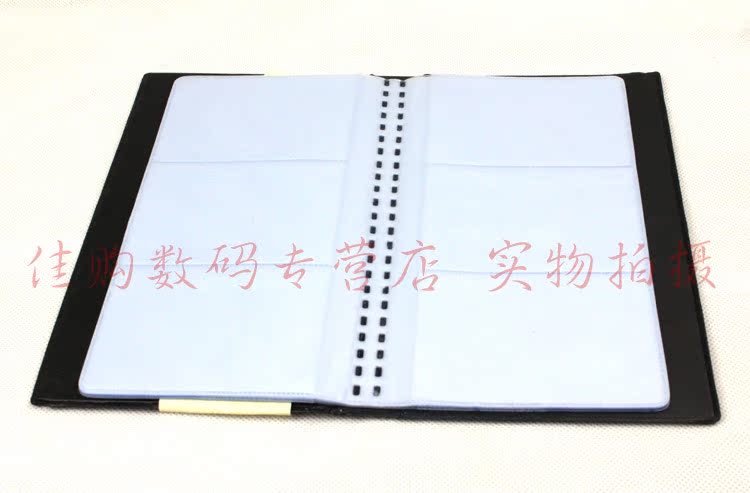 佳购数码专营店 实物拍摄